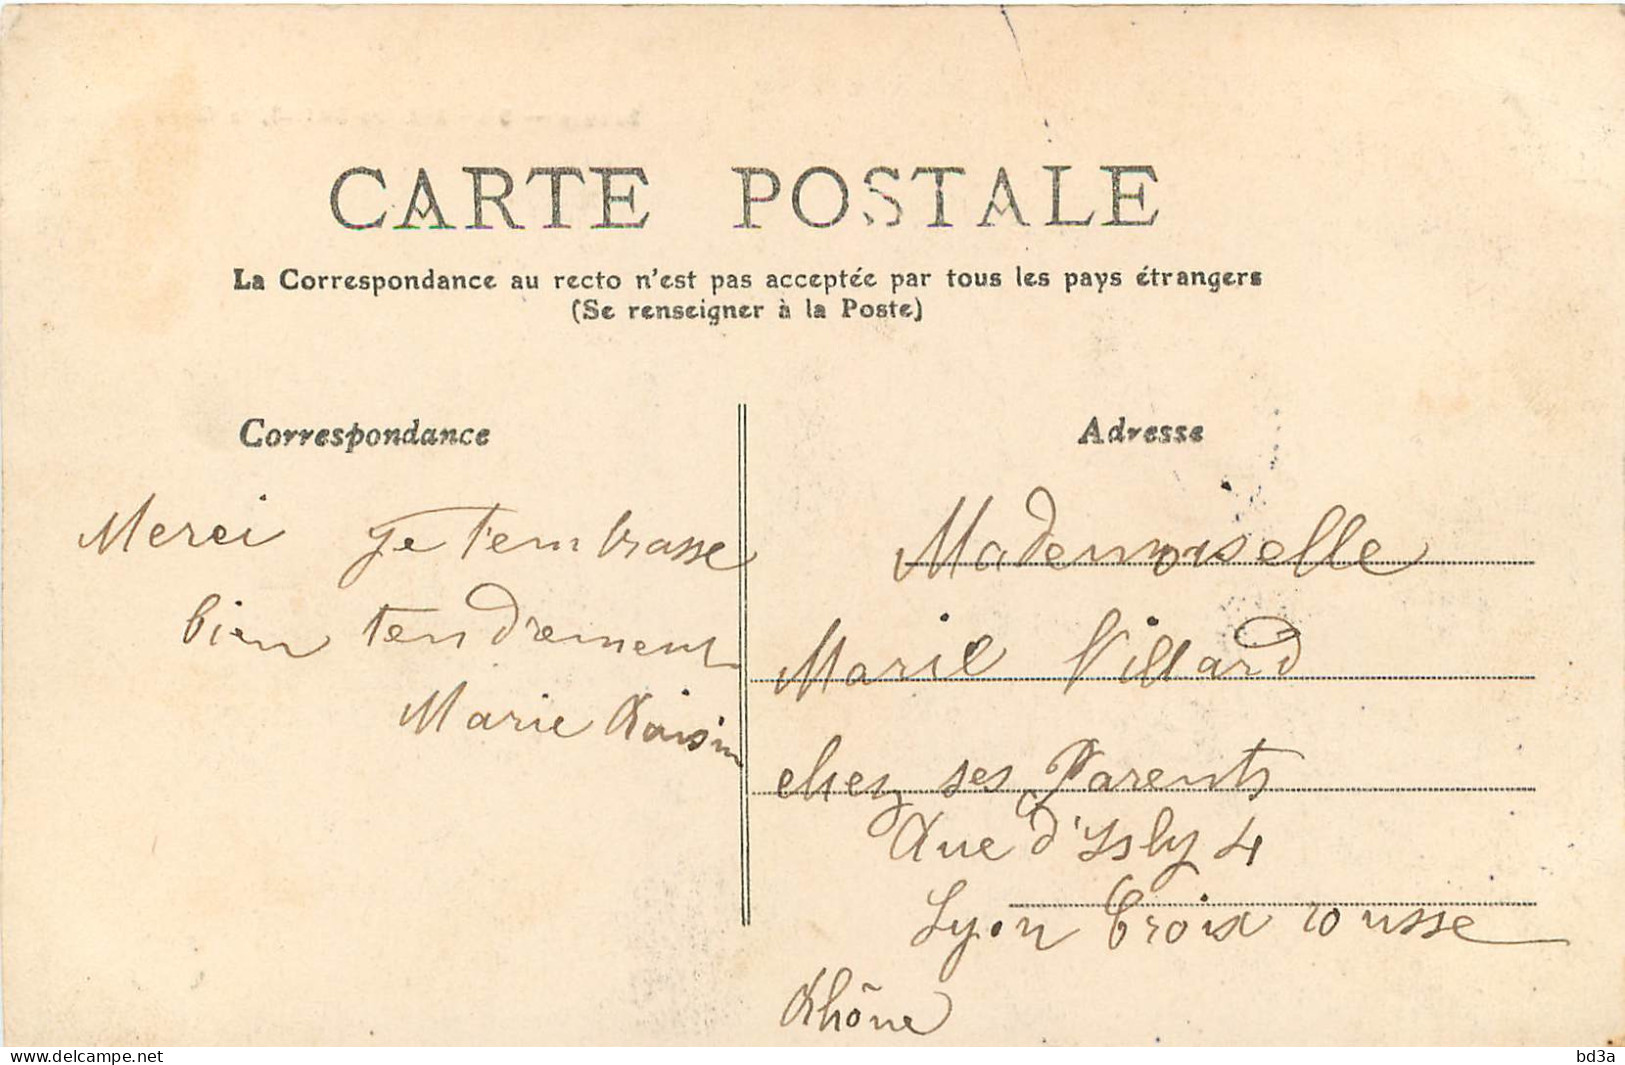 CARTE POSTALE
La Correspondance au recto n'est pas acceptée par tous les pays étrangers
(Se renseigner à la Poste)
Correspondance
Merci je t'embrasse
bien tendrement
Marie Raisin
Adresse
Mademoiselle
Marie Villard
chez ses Parents
Rue d'Isly 4
Lyon Croix rousse
Rhône
www.delcampe.net
bd3a